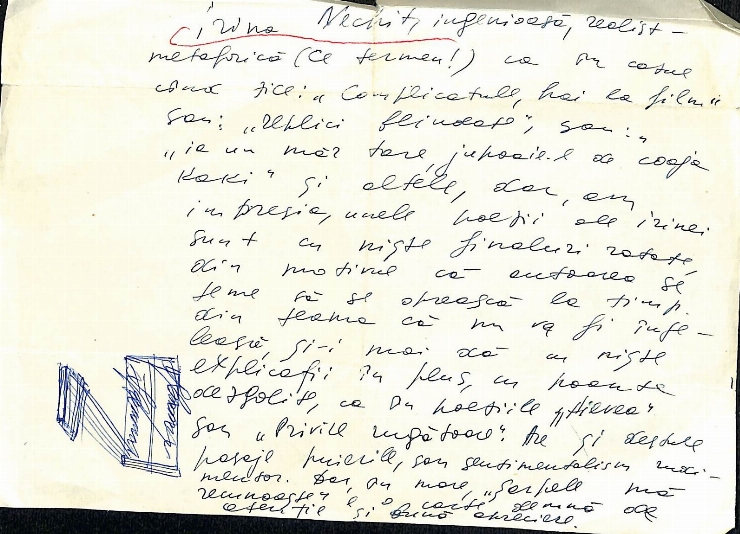 Irina Nechit, ingenioasă, realist-
metaforică (Ce termen!) ca în cazul
când zice: „Complicatule, hai la film"
sau: „replici blindate", sau: „
„ia un măr tare, jupoaie-l de coaja
kaki" și altele, dar, am
impresia, unele poezii ale Irinei
sunt cu niște finaluri ratate
din motivul că autoarea se
teme să se oprească la timp.
din teama că nu va fi înțe-
leasă, și-i mai dă cu niște
explicații în plus, cu poante
dezgolite, ca în poeziile „Aievea"
sau „Privire rugătoare". Are și destule
pasaje puerile, sau sentimentalism
Dar, în mare, „Șarpele mă
recunoaște" e o carte demnă de
atenție și bună apreciere.